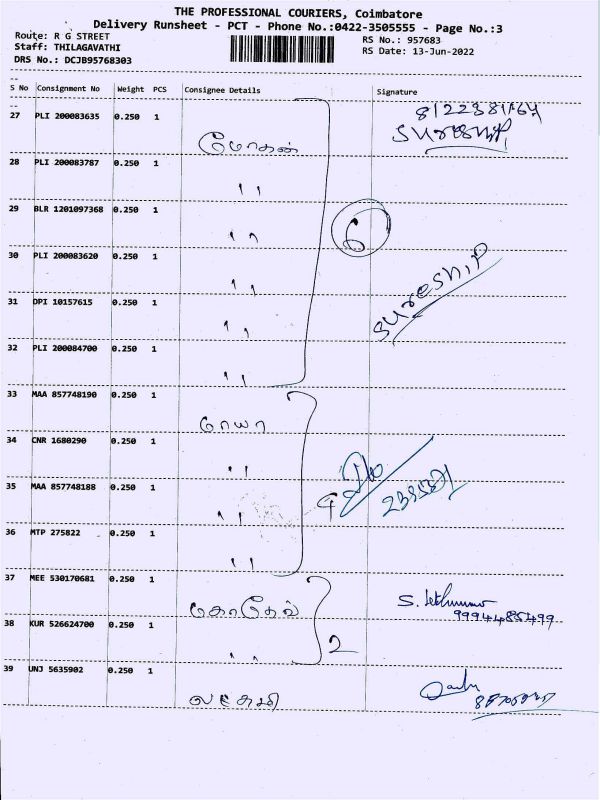 THE PROFESSIONAL COURIERS, Coimbatore
Delivery Runsheet - PCT - Phone No.:0422-3505555 - Page No.:3
Route: R G STREET
RS No.: 957683
Staff: THILAGAVATHI
RS Date: 13-Jun-2022
DRS No.: DCJB95768303
S No Consignment No Weight PCS Consignee Details Signature
27 PLI 200083635 0.250 1 மோகன் SURESH.P
28 PLI 200083787 0.250 1 ,,
29 BLR 1201097368 0.250 1 ,,
6
30 PLI 200083620 0.250 1 ,,
SURESH.P
31 DPI 10157615 0.250 1 ,,
32 PLI 200084700 0.250 1 ,,
33 MAA 857748190 0.250 1
34 CNR 1680290 0.250 1 ,,
35 MAA 857748188 0.250 1 ,,
36 MTP 275822 0.250 1 ,,
37 MEE 530170681 0.250 1 S.
9994485499
38 KUR 526624700 0.250 1 ,, 2
39 UNJ 5635902 0.250 1